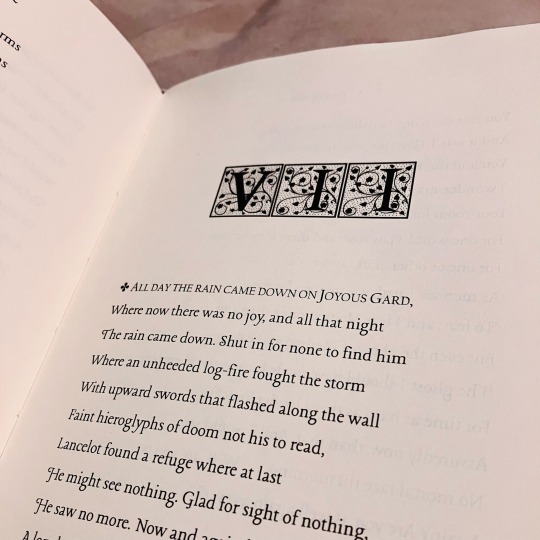 rms
VII
ALL DAY THE RAIN CAME DOWN ON JOYOUS GARD,
Where now there was no joy, and all that night
The rain came down. Shut in for none to find him
Where an unheeded log-fire fought the storm
With upward swords that flashed along the wall
Faint hieroglyphs of doom not his to read,
Lancelot found a refuge where at last
He might see nothing. Glad for sight of nothing,
He saw no more. Now and